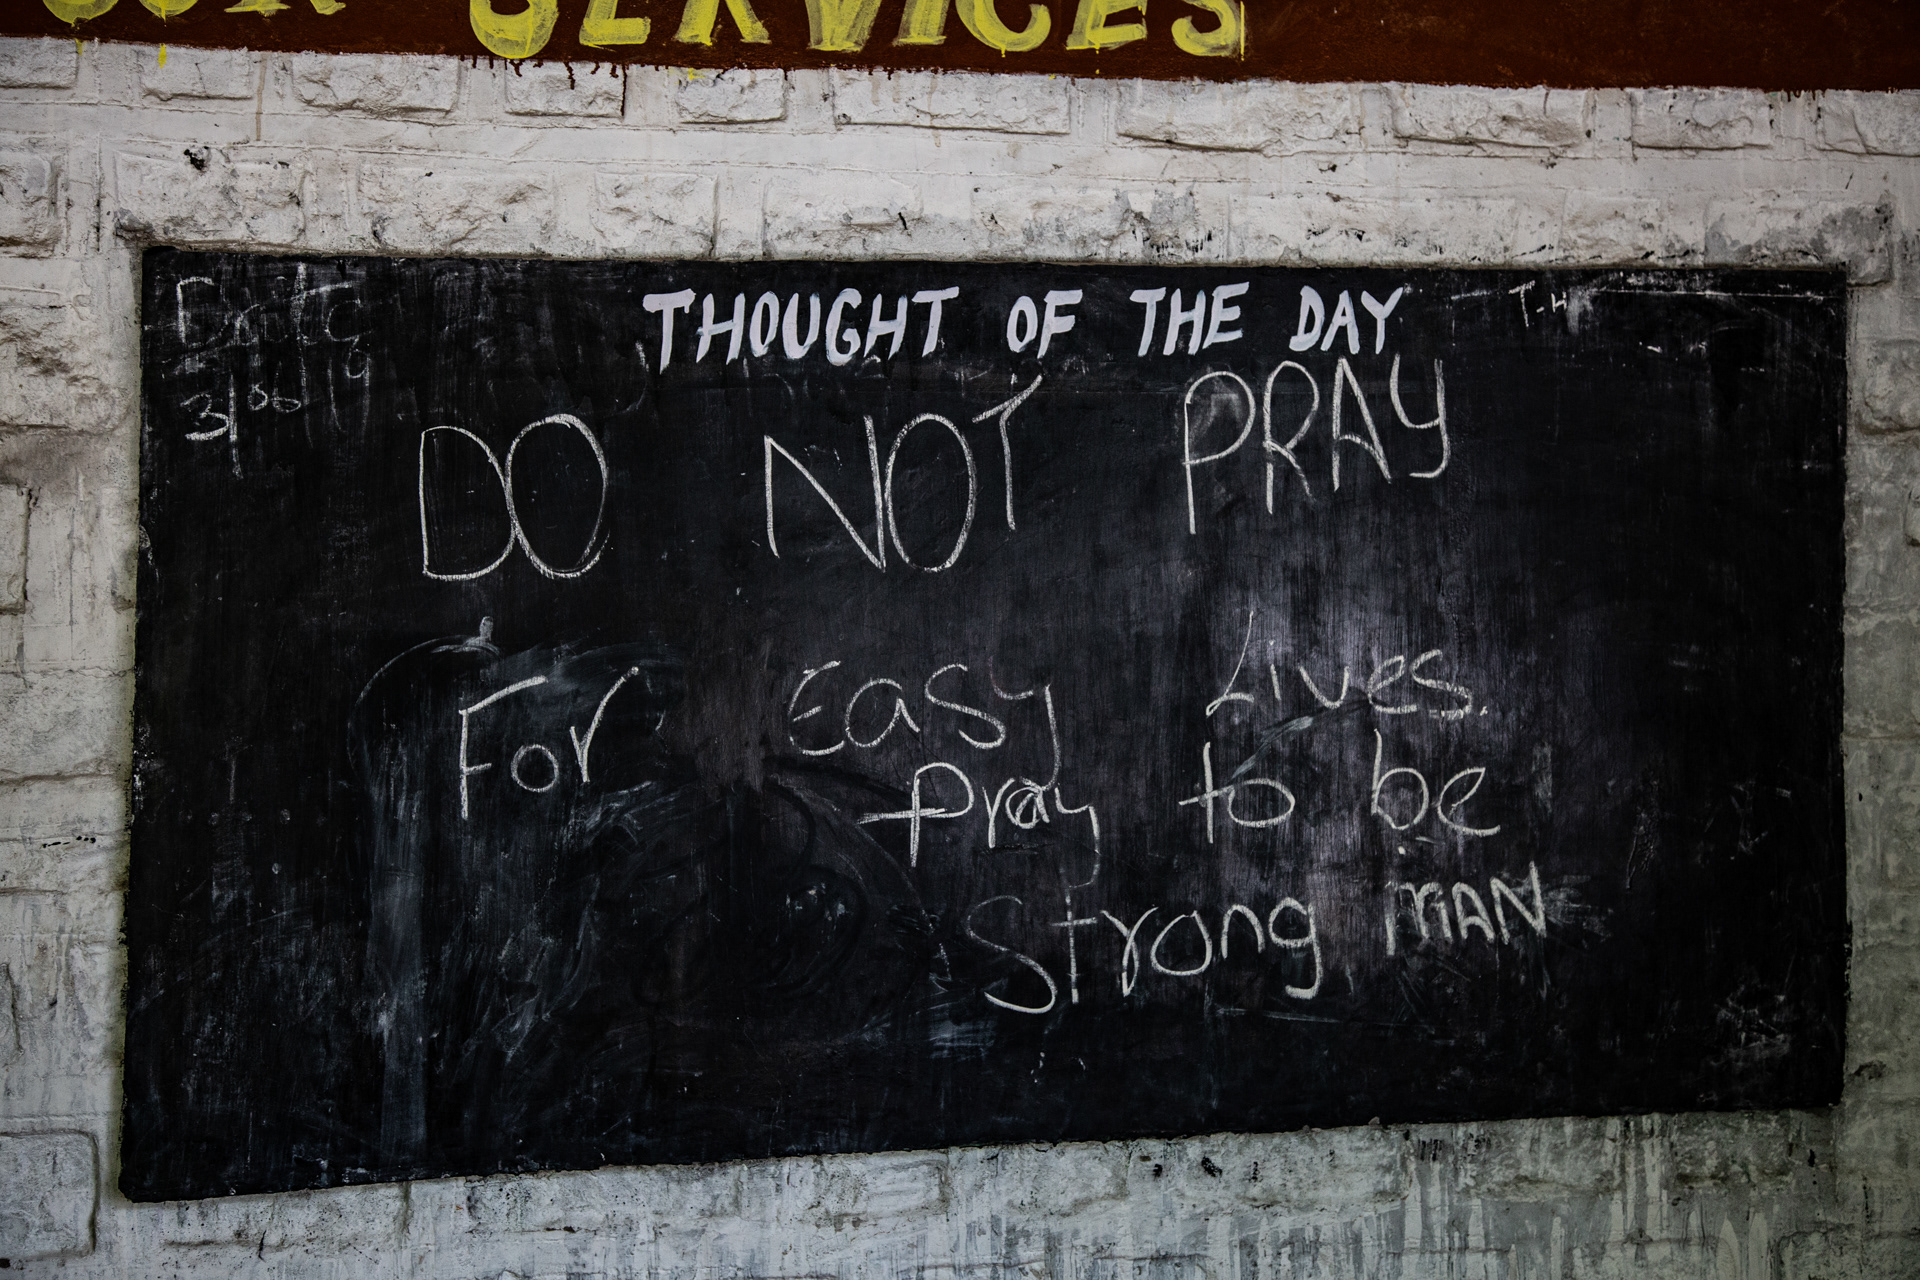 SERVICES
THOUGHT OF THE DAY
Date
DO NOT PRAY
For Easy Lives.
Pray to be
Strong MAN